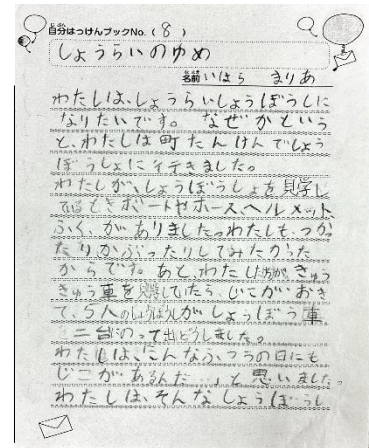 自分はっけんブックNo.(8)
しょうらいのゆめ
名前 いはら まりあ
わたしは、しょうらいしょうぼうしに
なりたいです。 なぜかという
と、わたしは町たんけんでしょう
ぼうしょに行きました。
わたしが、しょうぼうしょを見学し
てるときボートやホースヘルメット
ふく、がありました。わたしも、つかっ
たりかぶったりしてみたかった
からです。あと、わたしたちが、きゅう
きゅう車を見学していたら、じこがおき
て、5人のしょうぼうしがしょうぼう車
二台のって出どうしました。
わたしは、こんなふつうの日にも
じこがあるんだ と思いました。
わたしは、そんなしょうぼうし